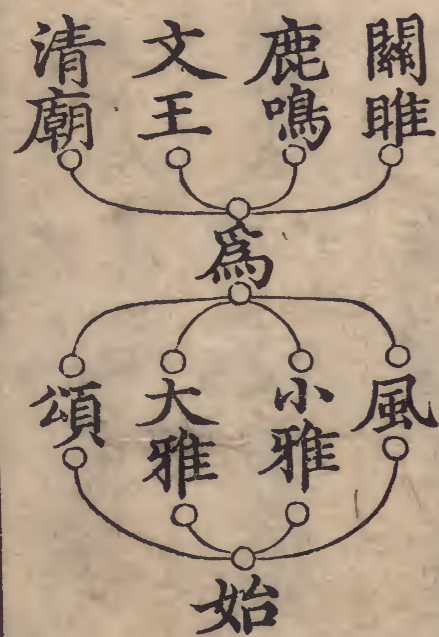 關雎
鹿鳴
文王
清廟
爲
風
小雅
大雅
頌
始